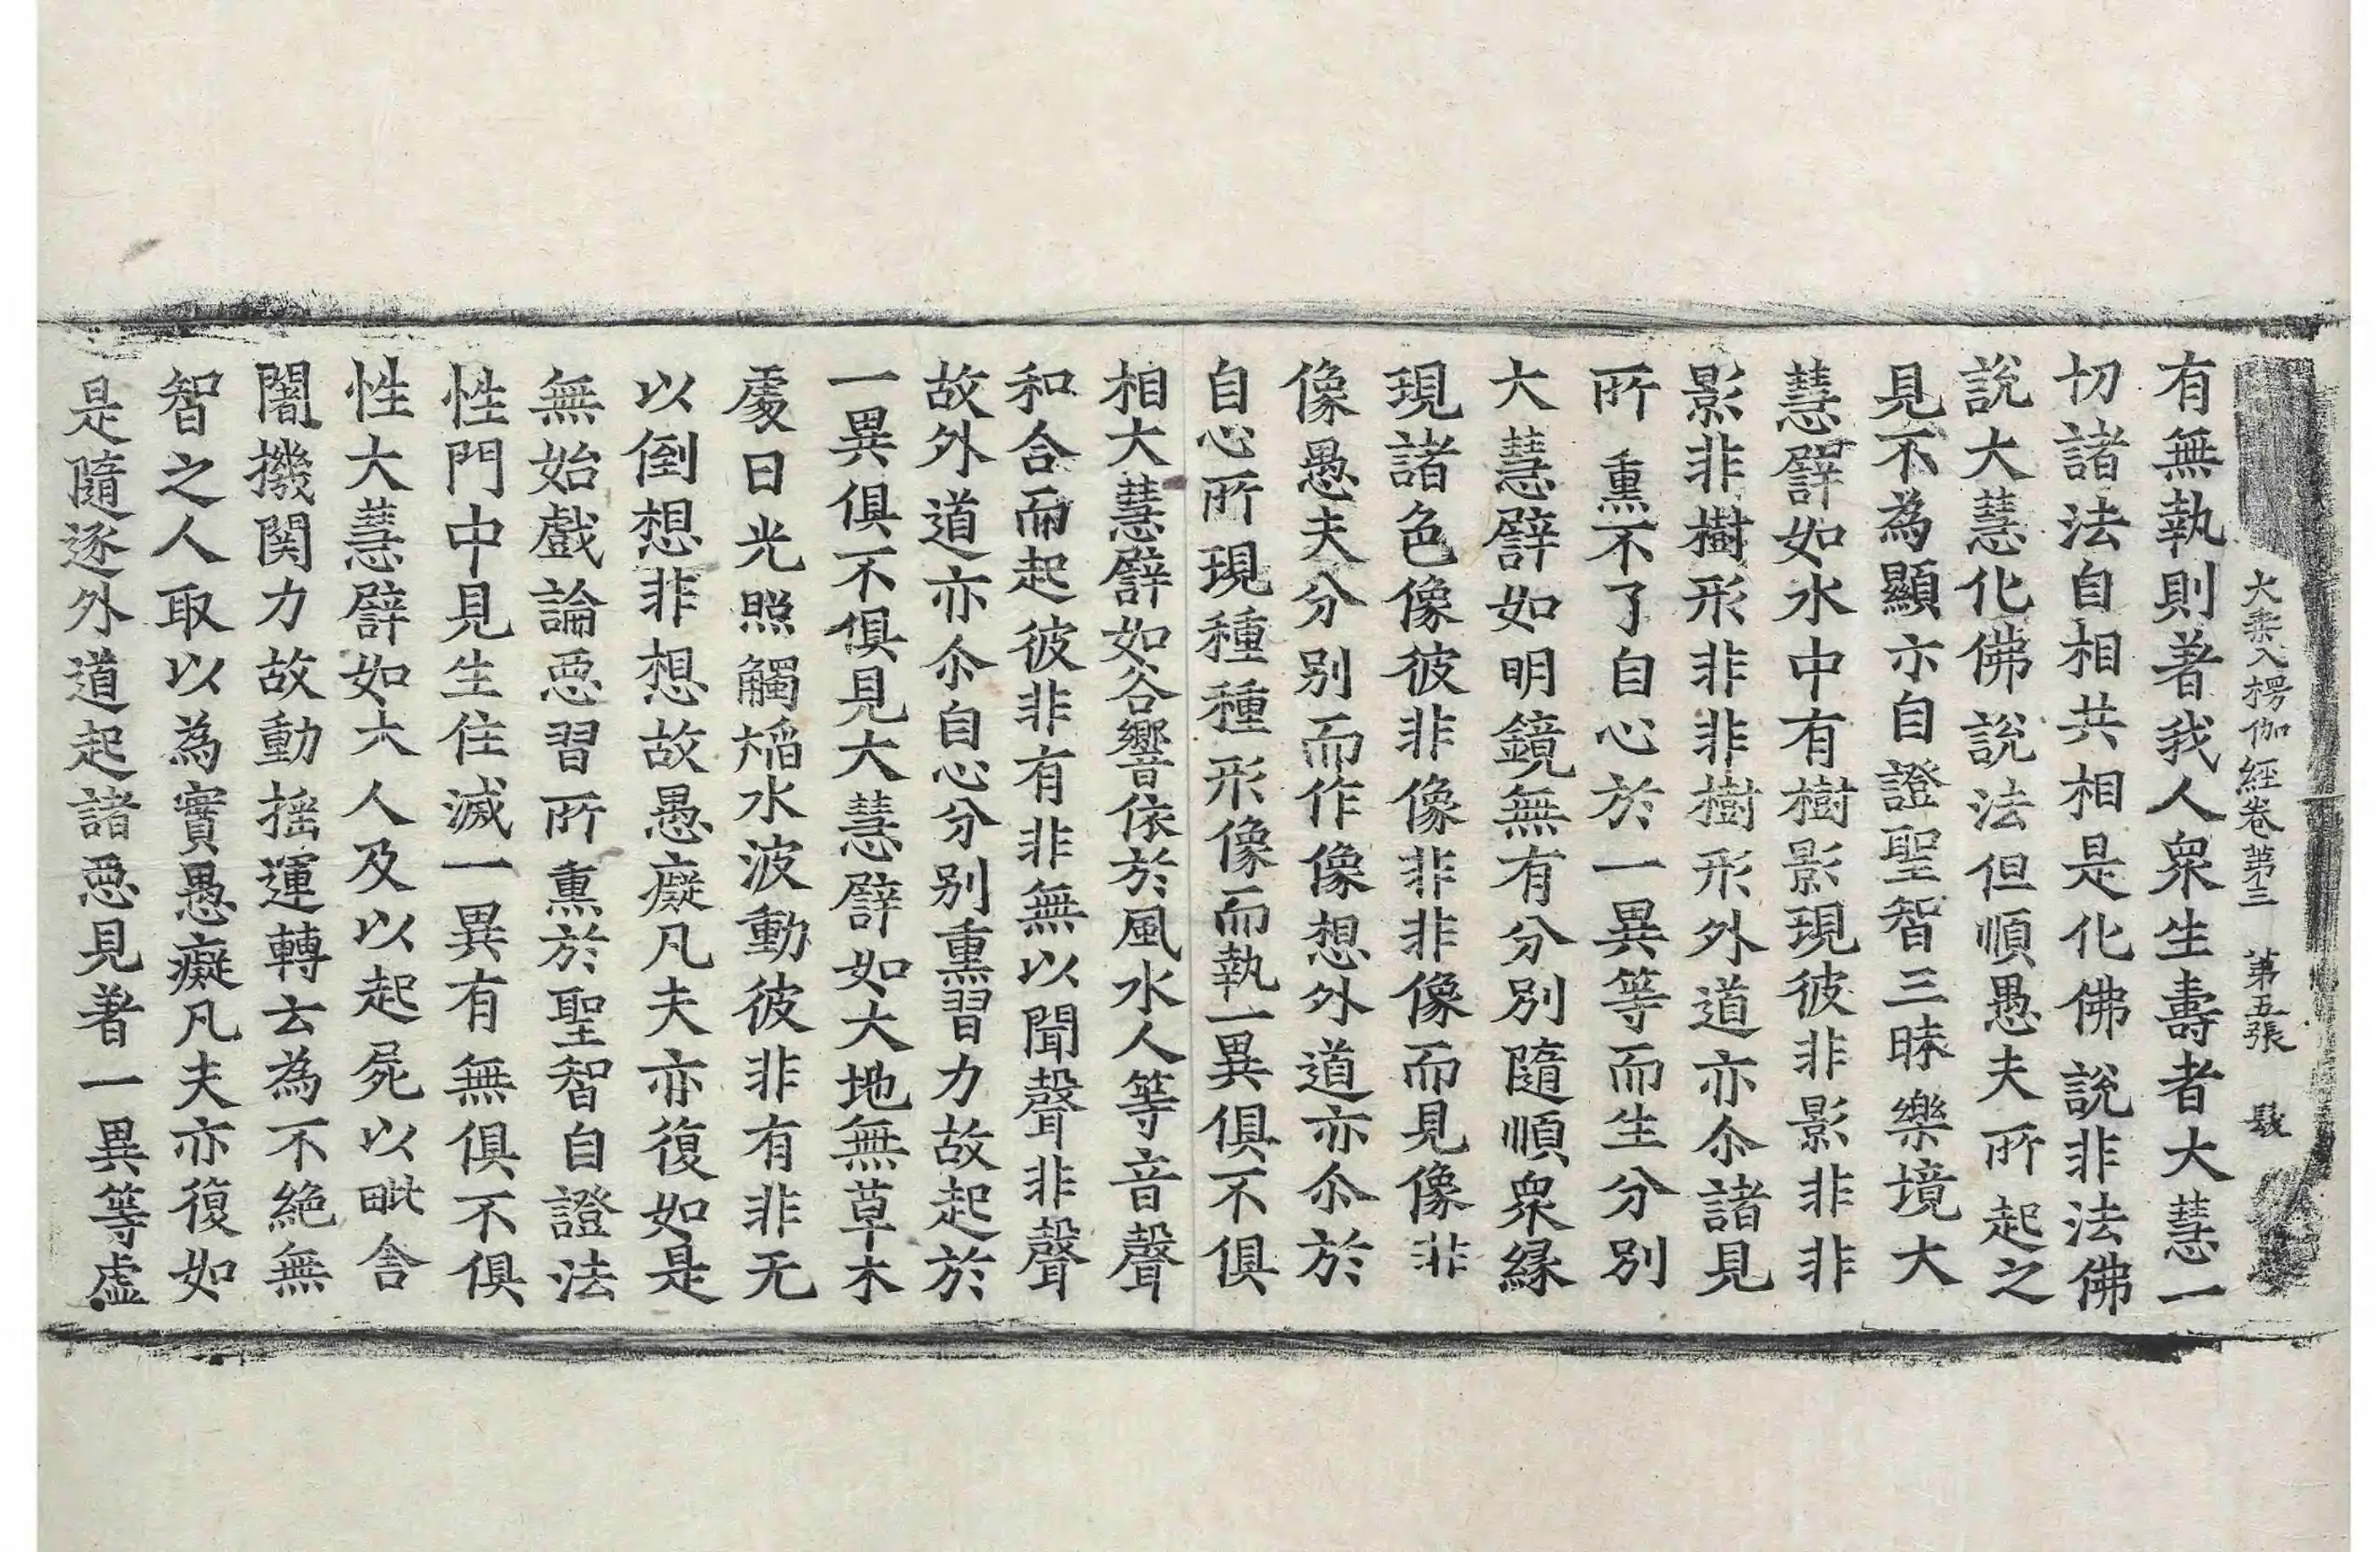 大乗入楞伽經卷第三　第五張
有無執則著我人衆生壽者大慧一
切諸法自相共相是化佛說非法佛
說大慧化佛說法但順愚夫所起之
見不為顯亦自證聖智三昧樂境大
慧譬如水中有樹影現彼非影非非
影非樹形非非樹形外道亦尒諸見
所熏不了自心於一異等而生分別
大慧譬如明鏡無有分別隨順衆緣
現諸色像彼非像非非像而見像非
像愚夫分別而作像想外道亦尒於
自心所現種種形像而執一異俱不俱
相大慧譬如谷響依於風水人等音聲
和合而起彼非有非無以聞聲非聲
故外道亦尒自心分別熏習力故起於
一異俱不俱見大慧譬如大地無草木
處日光照觸熖水波動彼非有非无
以倒想非想故愚癡凡夫亦復如是
無始戲論惡習所熏於聖智自證法
性門中見生住滅一異有無俱不俱
性大慧譬如木人及以起屍以毗舍
闍機関力故動搖運轉去為不絶無
智之人取以為實愚癡凡夫亦復如
是隨逐外道起諸惡見著一異等虛